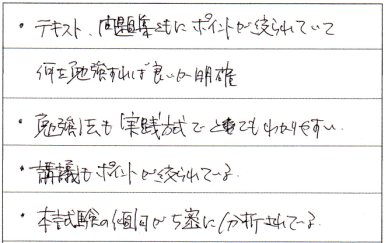 ・テキスト、問題集ともにポイントが絞られていて
何を勉強すれば良いか明確
・勉強法も実践方式でとてもわかりやすい。
・講議もポイントが絞られている。
・本試験の傾向がち密に分析されている。